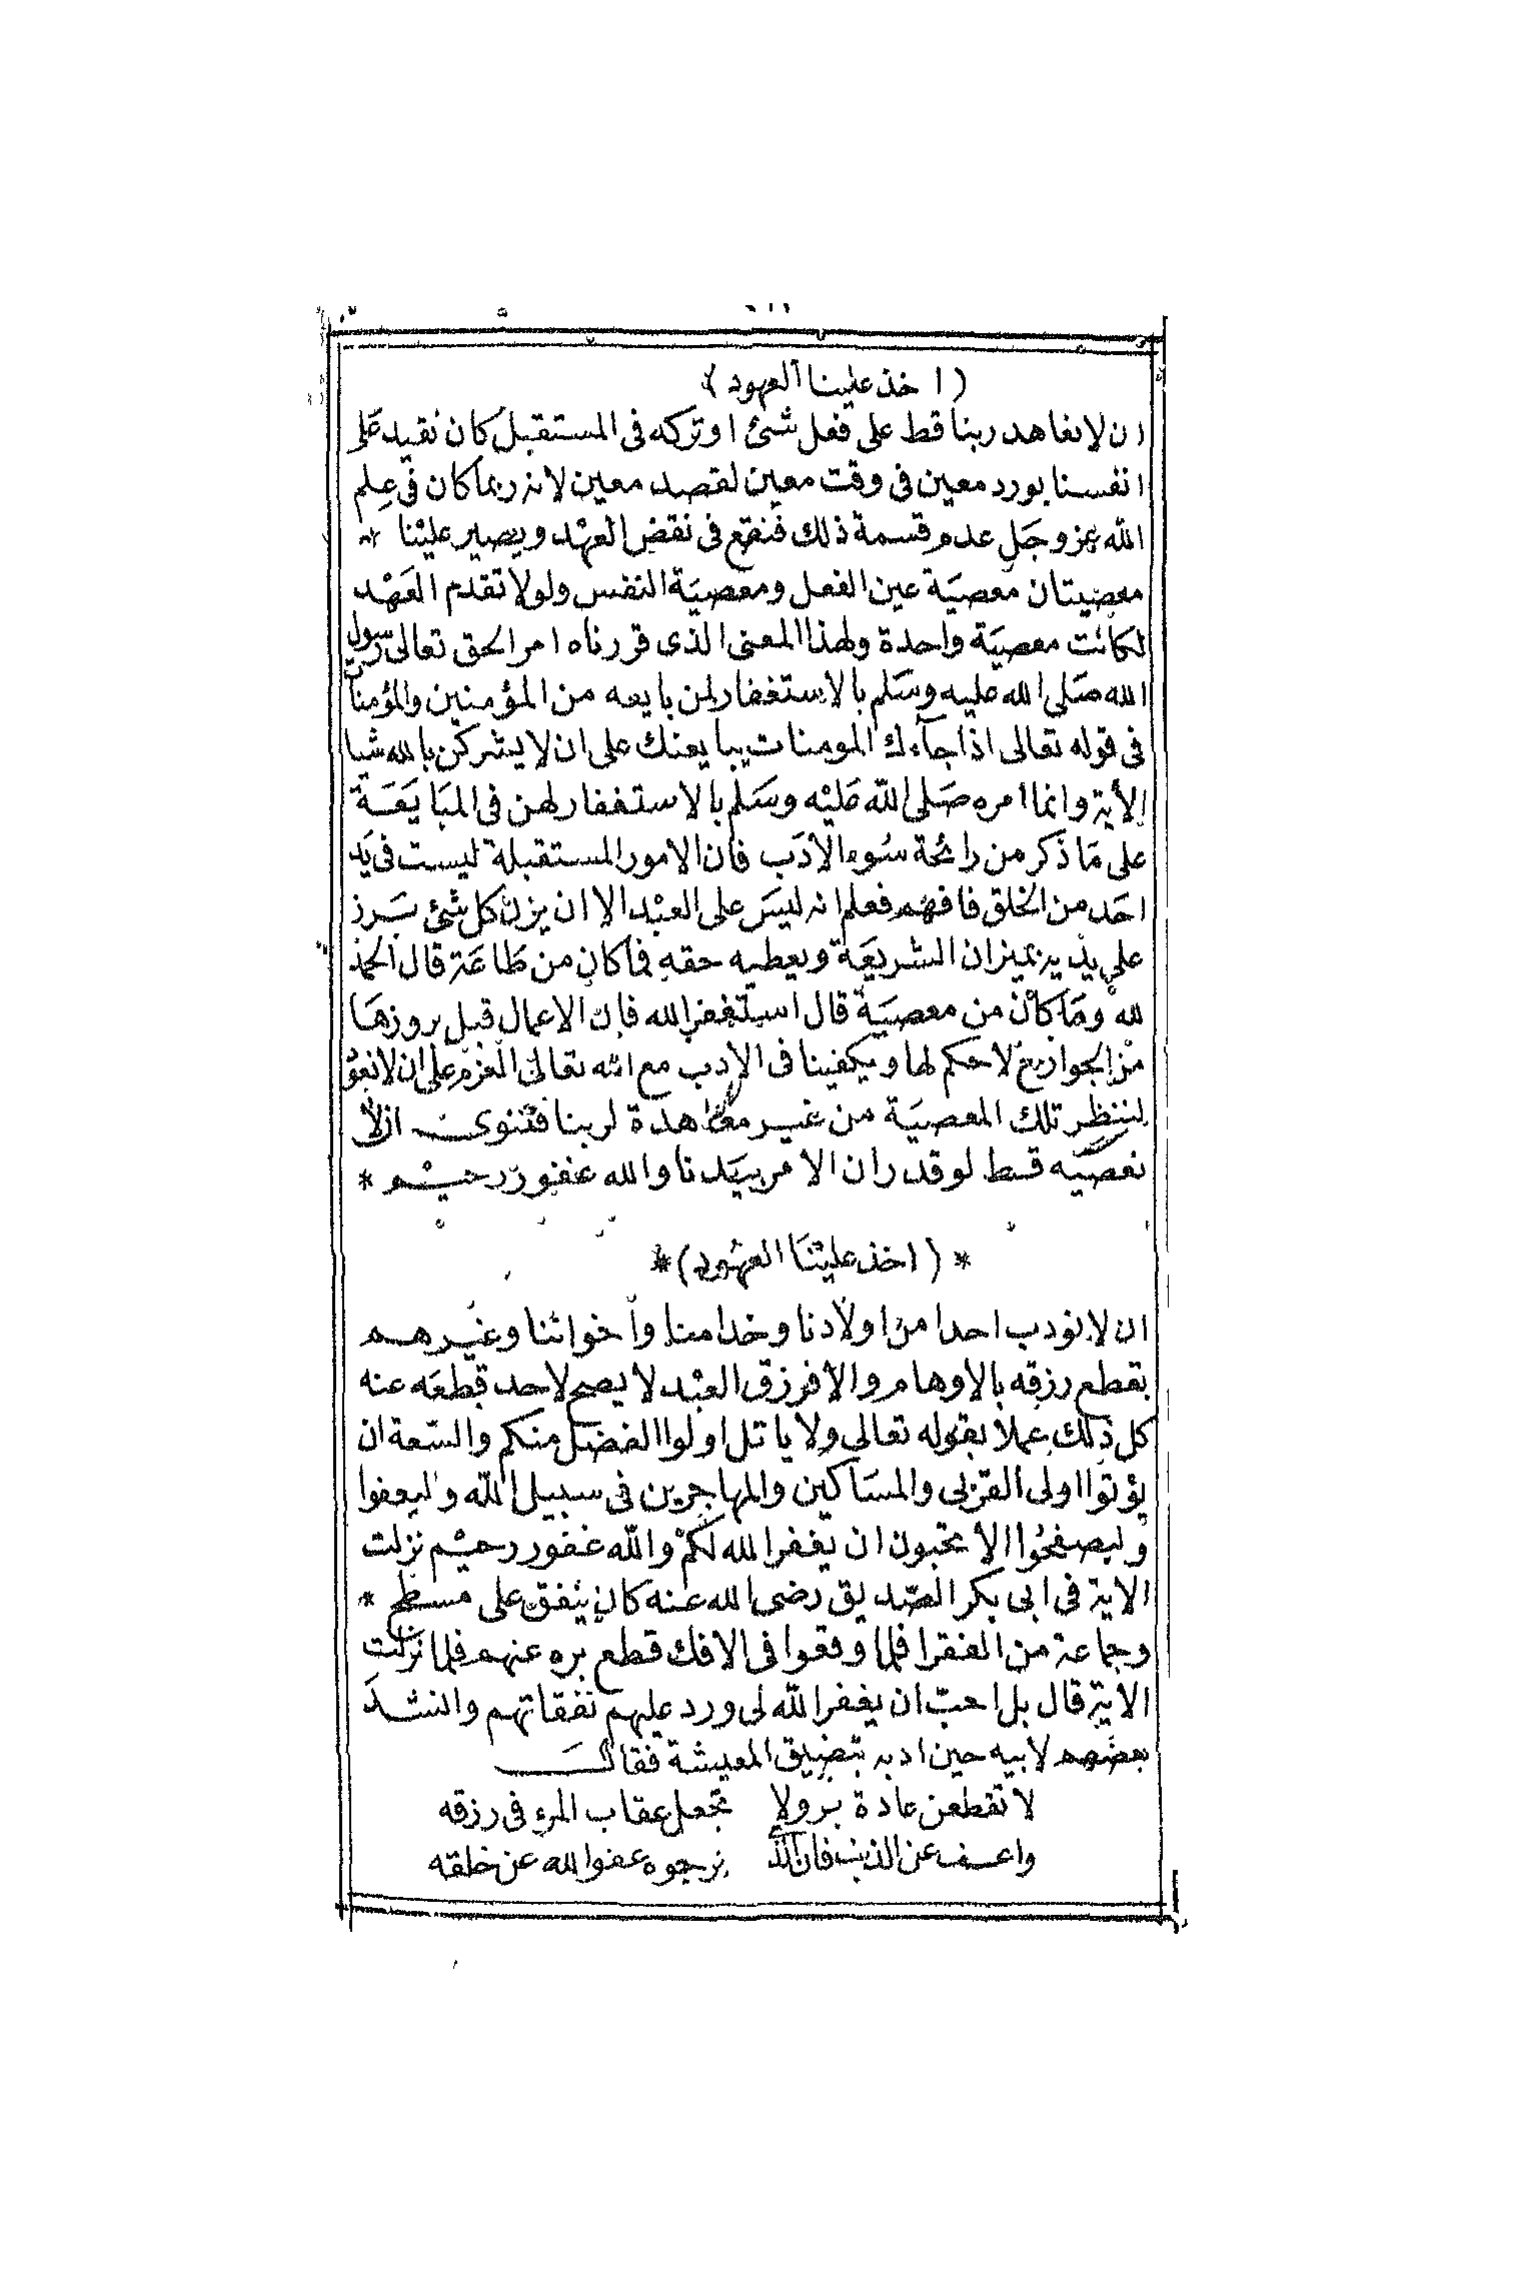 (اخذ علينا العهود)
ان لا نعاهد ربنا قط على فعل شئ او تركه فى المستقبل كان نقيد على
انفسنا بورد معين فى وقت معين لقصد معين لانه ربما كان فى علم
الله عز وجل عدم قسمة ذلك فنقع فى نقض العهد ويصير علينا *
معصيتان معصية عين الفعل ومعصية النفس ولولا تقدم العهد
لكانت معصية واحدة ولهذا المعنى الذى قررناه امر الحق تعالى رسول
الله صلى الله عليه وسلم بالاستغفار لمن بايعه من المؤمنين والمؤمنا
فى قوله تعالى اذا جآءك المومنات يبايعنك على ان لا يشركن بالله شيا
الأية وانما امره صلى الله عليه وسلم بالاستغفار لهن فى المبايعة
على ما ذكر من رائحة سوء الادب فان الامور المستقبلة ليست فى يد
احد من الخلق فافهم فعلم انه ليس على العبد الا ان يزن كل شئ برز
على يديه بميزان الشريعة ويعطيه حقه فما كان من طاعة قال الحمد
لله وما كان من معصية قال استغفر الله فان الاعمال قبل بروزها
من الجوارح لا حكم لها ويكفينا فى الادب مع الله تعالى العزم على ان لا نعو
لننظر تلك المعصية من غير معاهدة لربنا فتنوى ان لا
نعصيه قط لو قدر ان الامر بيدنا والله غفور رحيم *
*(اخذ علينا العهود)*
ان لا نودب احدا من اولادنا وخدامنا واخواننا وغيرهم
بقطع رزقه بالاوهام والا فرزق العبد لا يصح لاحد قطعه عنه
كل ذلك عملا بقوله تعالى ولا ياتل اولوا الفضل منكم والسّعة ان
يؤتوا اولى القربى والمساكين والمهاجرين فى سبيل الله وليعفوا
وليصفحوا الا تحبون ان يغفر الله لكم والله غفور رحيم نزلت
الاية فى ابى بكر الصّديق رضى الله عنه كان ينفق على مسطح *
وجماعة من الفقرا فلما وقعوا فى الافك قطع بره عنهم فلما نزلت
الاية قال بل احبّ ان يغفر الله لى ورد عليهم نفقاتهم وانشد
بعضهم لابيه حين ادبه بتضييق المعيشة فقال
لا تقطعن عادة بر ولا تجعل عقاب المرء فى رزقه
واعف عن الذنب فان الذى نرجوه عفو الله عن خلقه